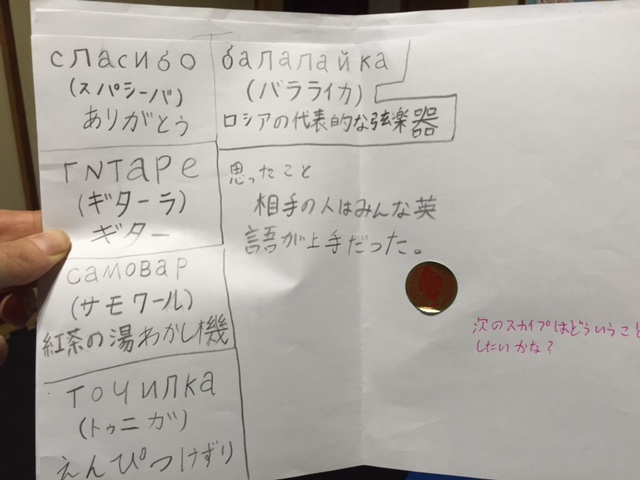 спасибо
(スパシーバ)
ありがとう
балалайка
(バラライカ)
ロシアの代表的な弦楽器
гNтаре
(ギターラ)
ギター
思ったこと
相手の人はみんな英
語が上手だった。
самовар
(サモワール)
紅茶の湯わかし機
точилка
(トゥニガ)
えんぴつけずり
次のスカイプはどういうこと
したいかな?